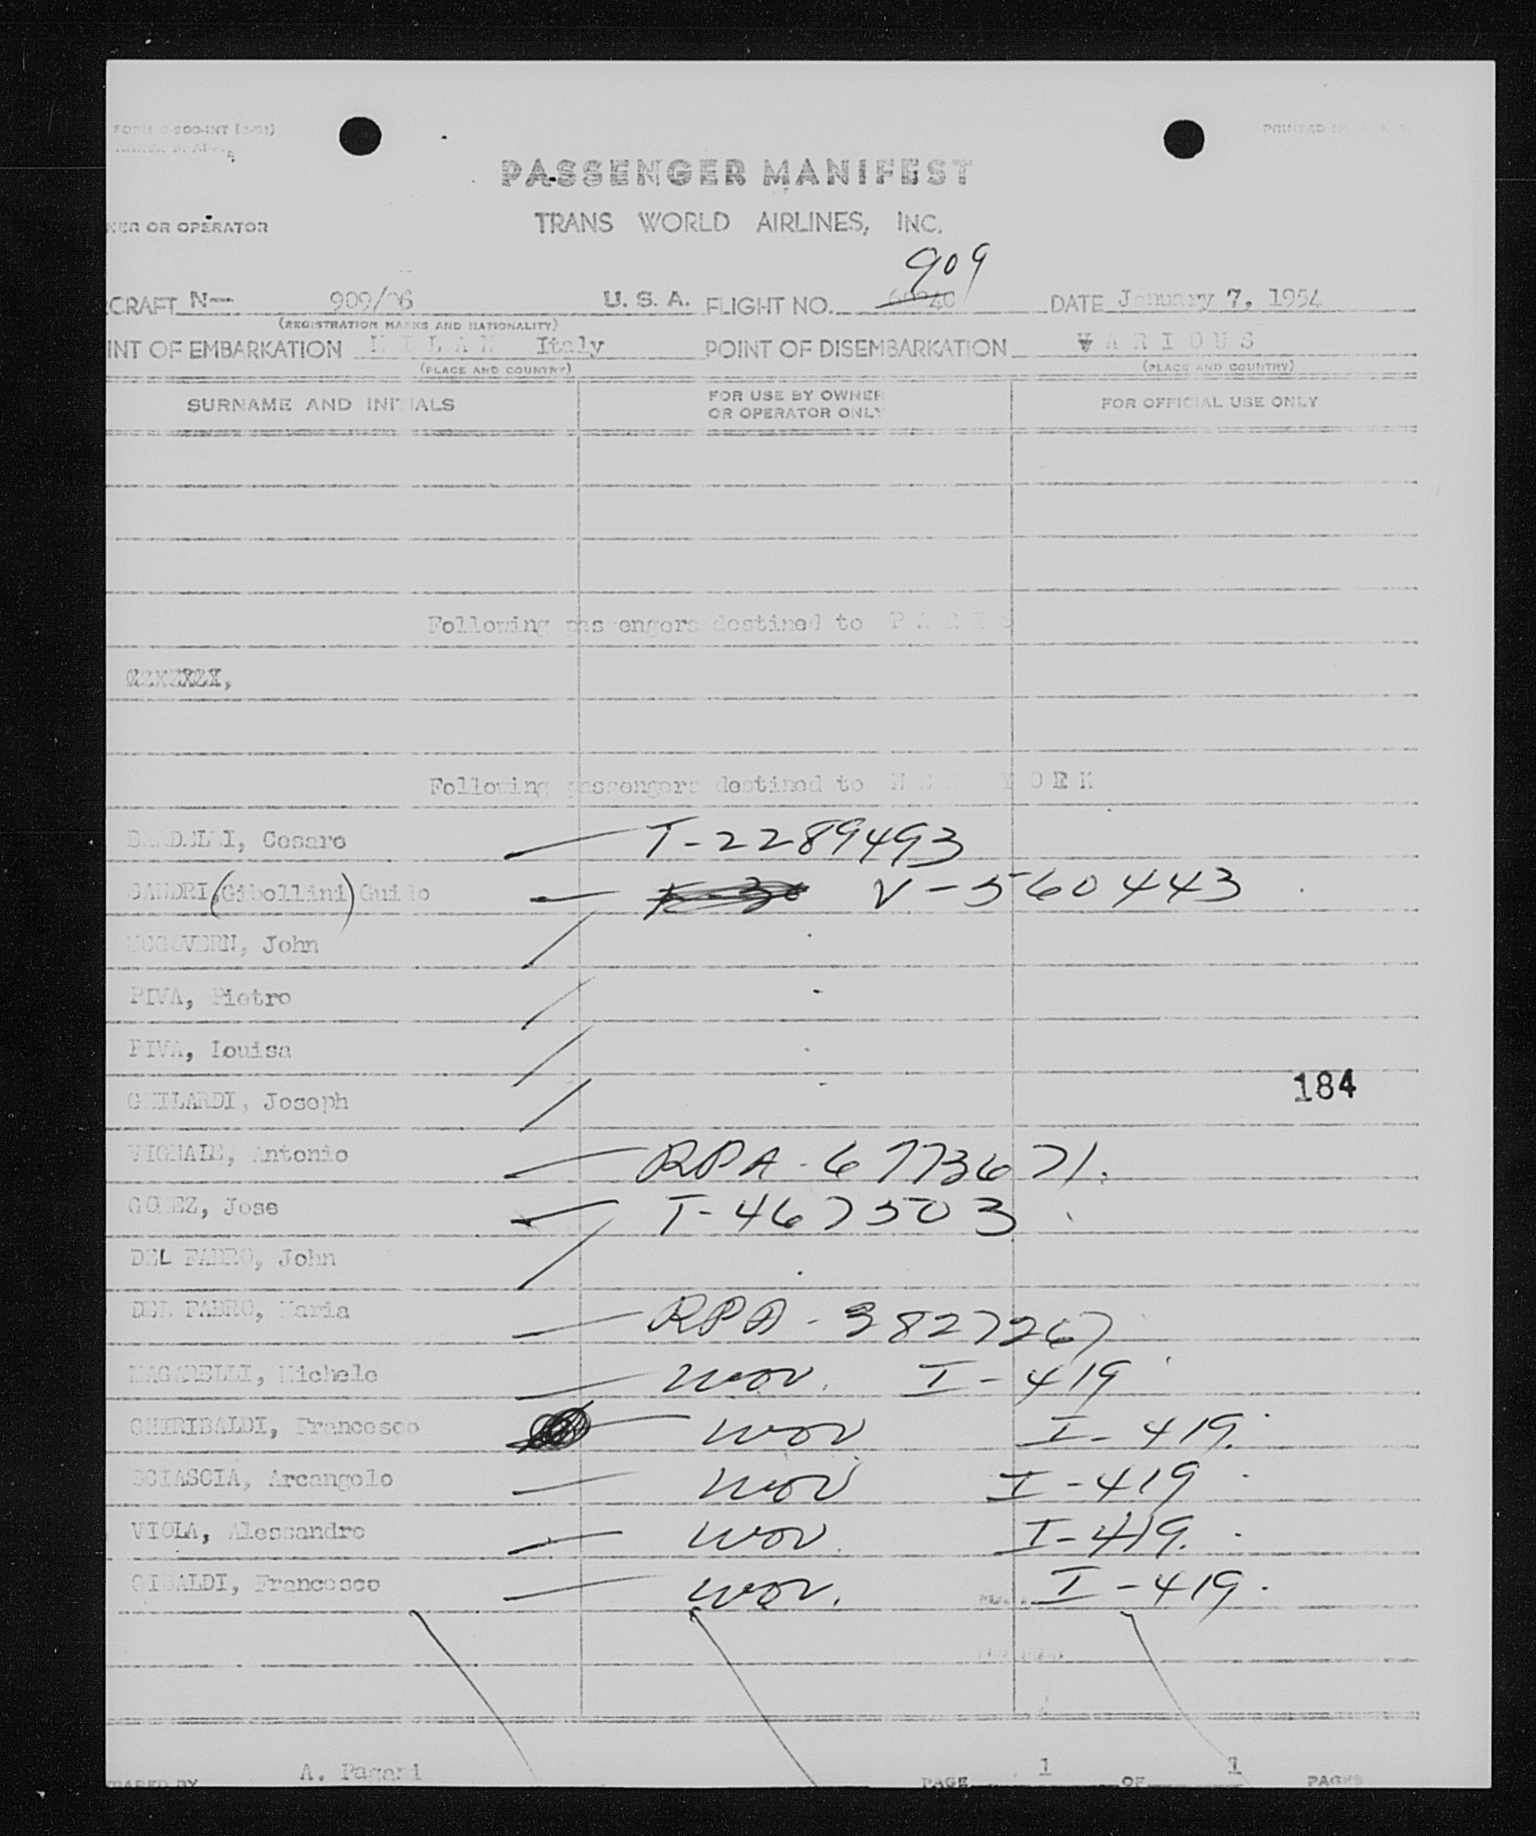 PASSENGER MANIFEST
OR OPERATOR
TRANS WORLD AIRLINES, INC.
909
N-- 909/ U. S. A. FLIGHT NO. DATE January 7, 1954
(REGISTRATION MARKS AND NATIONALITY)
INT OF EMBARKATION MILAN Italy POINT OF DISEMBARKATION VARIOUS
(PLACE AND COUNTRY) (PLACE AND COUNTRY)
SURNAME AND INITIALS FOR USE BY OWNER OR OPERATOR ONLY FOR OFFICIAL USE ONLY
Following passengers destined to PARIS
Following passengers destined to NEW YORK
Cesare T-2289493
SANDRI, (Gibellini) Guido V-560443
MCGOVERN, John
PIVA, Pietro
PIVA, Louisa
184
GHILARDI, Joseph
VIGNALE, Antonio RPA-6773671.
GOMEZ, Jose T-467503
DEL FABRO, John
DEL FABRO, Maria RPA-3827267
MAGARELLI, Michele wov. I-419
GHIRIBALDI, Francesco wov I-419.
SCIASCIA, Arcangelo wov I-419
VIOLA, Alessandro wov. I-419.
GIBALDI, Francesco wov. I-419.
A. Pagani
PAGE 1 OF 1 PAGES